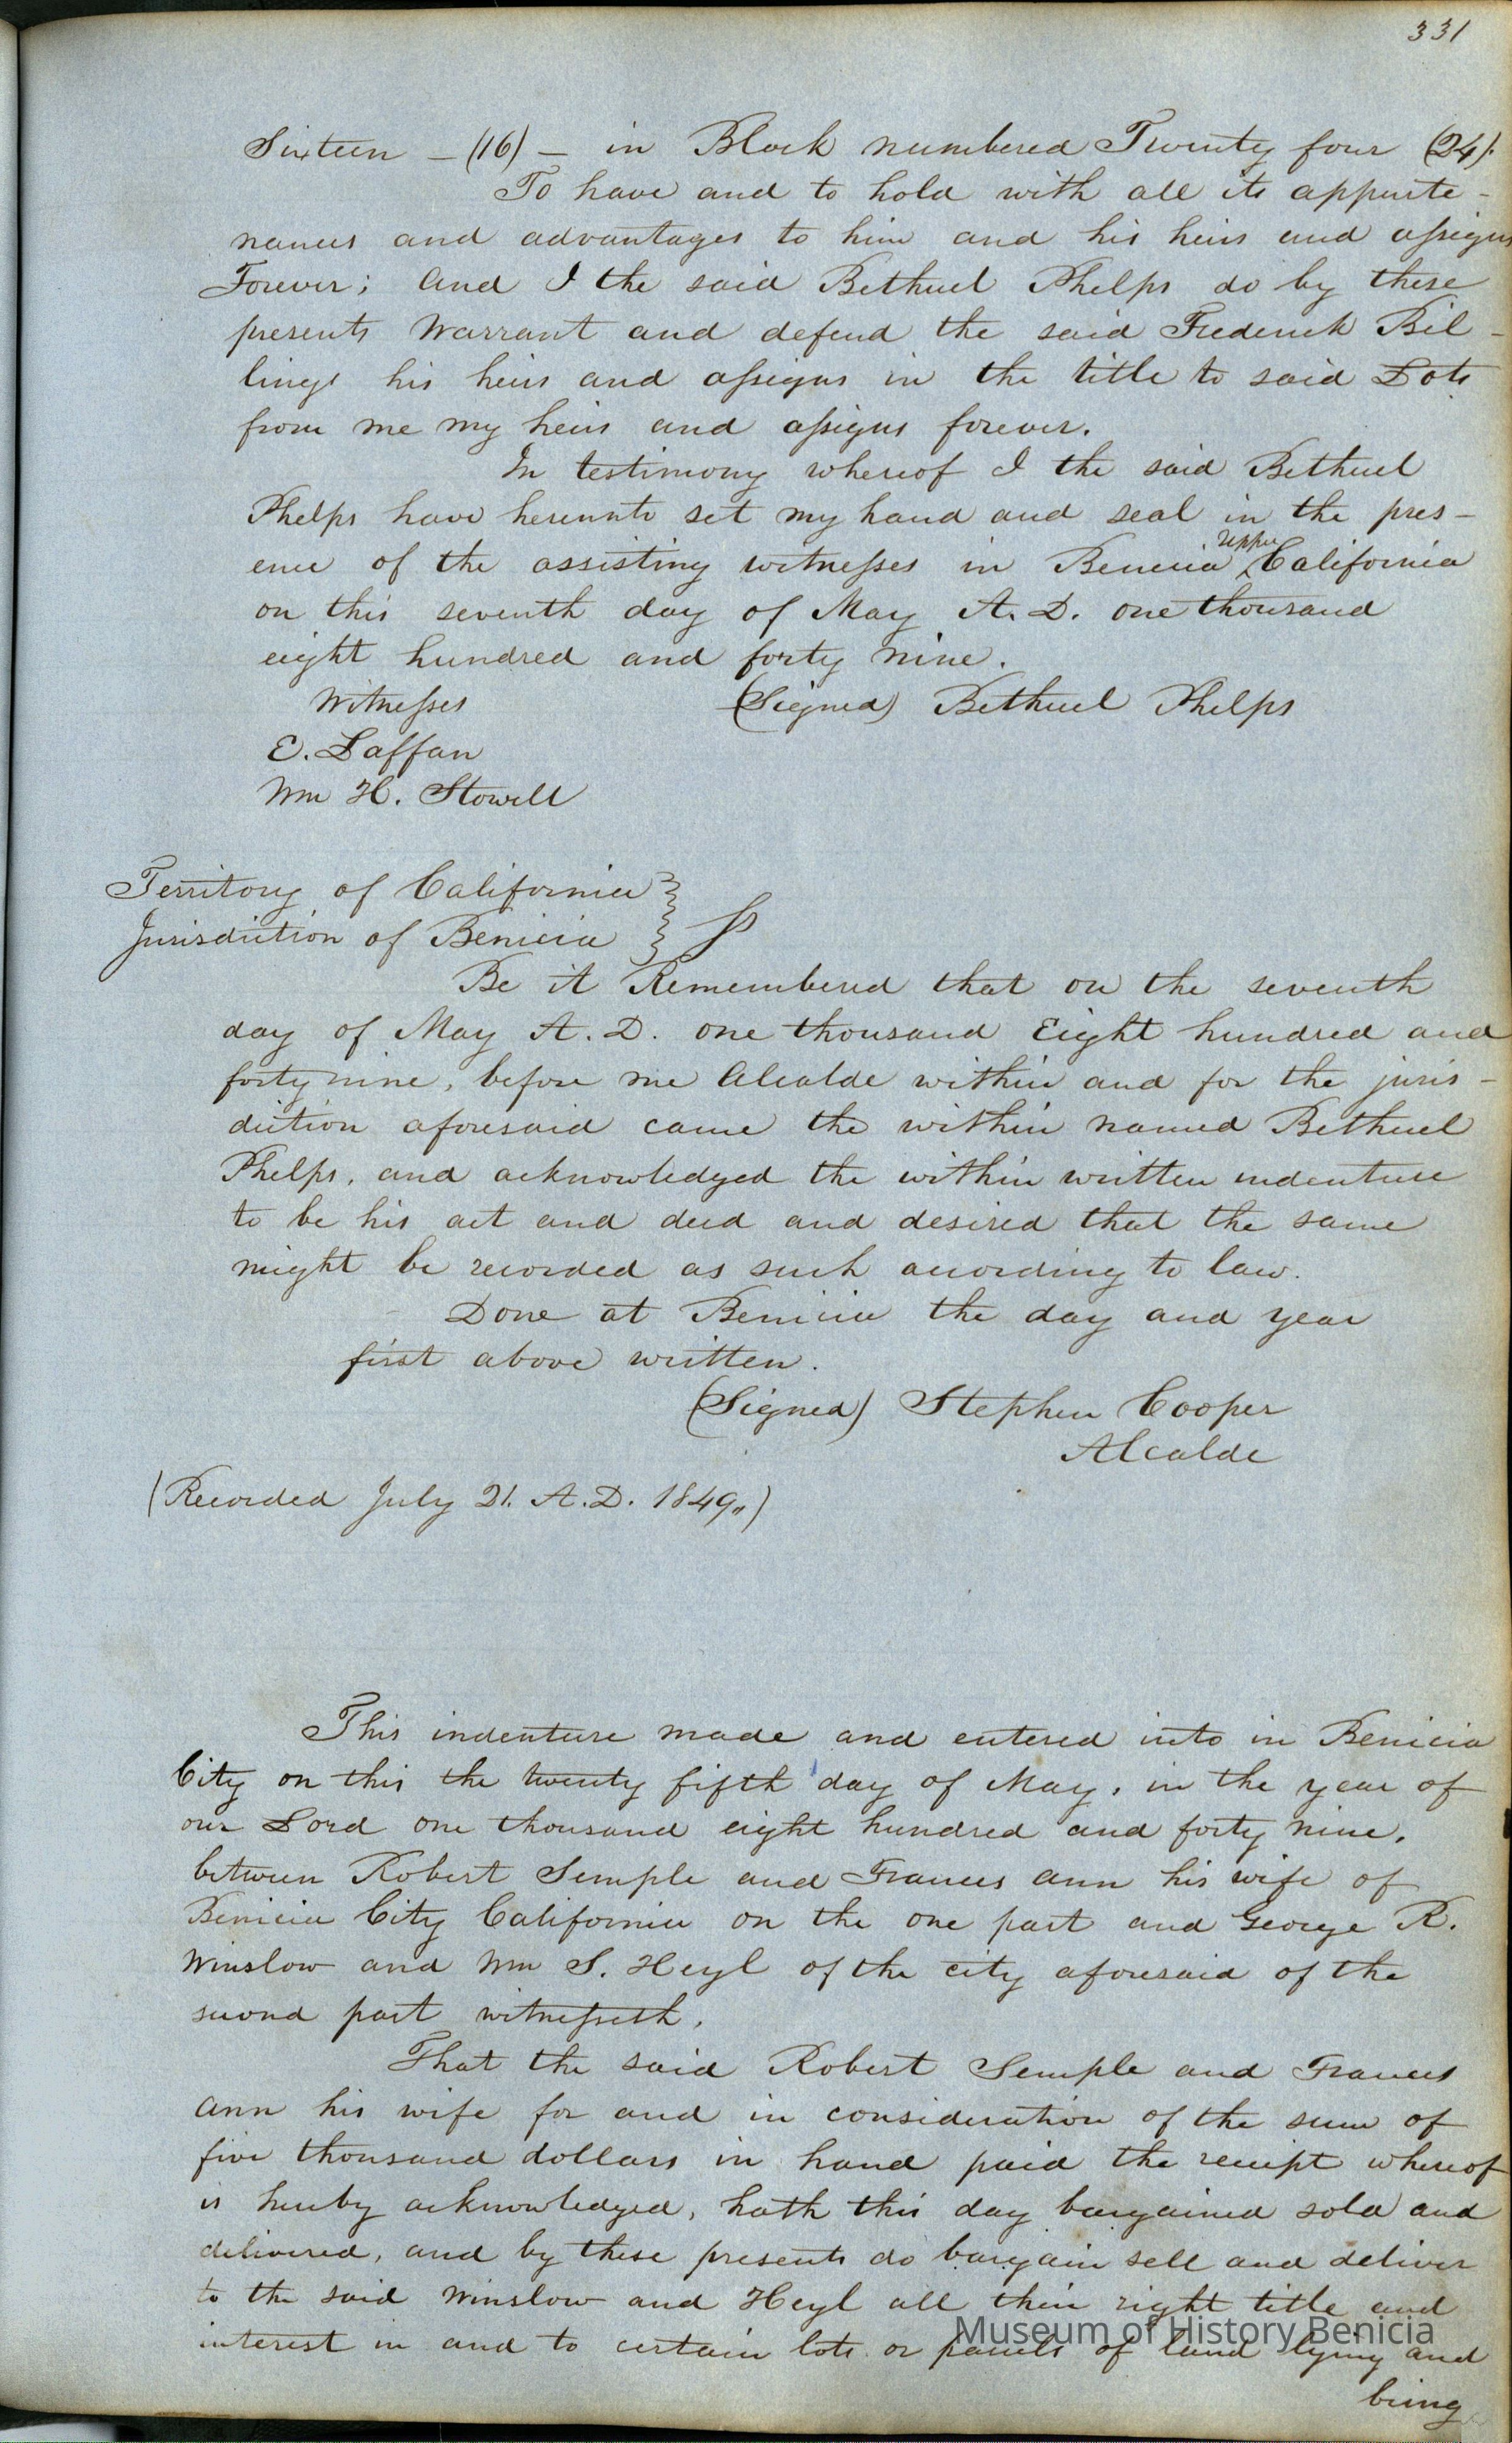 331
Sixteen – (16) – in Block numbered Twenty four (24).
To have and to hold with all its appurte-
nances and advantages to him and his heirs and assigns
Forever; And I the said Bethuel Phelps do by these
presents Warrant and defend the said Frederick Bil-
lings his heirs and assigns in the title to said Lots
from me my heirs and assigns forever.
In testimony whereof I the said Bethuel
Phelps have hereunto set my hand and seal in the pres-
ence of the assisting witnesses in Benicia ^Upper California
on this seventh day of May A.D. one thousand
eight hundred and forty nine.
Witnesses (Signed) Bethuel Phelps
E. Laffan
Wm H. Stowell
Territory of California }
Jurisdiction of Benicia } ss
Be it Remembered that on the seventh
day of May A.D. one thousand Eight hundred and
forty nine, before me Alcalde within and for the juris-
diction aforesaid came the within named Bethuel
Phelps, and acknowledged the within written indenture
to be his act and deed and desired that the same
might be recorded as such according to law.
Done at Benicia the day and year
first above written.
(Signed) Stephen Cooper
Alcalde
(Recorded July 21. A.D. 1849,,)
This indenture made and entered into in Benicia
City on this the twenty fifth day of May, in the year of
our Lord one thousand eight hundred and forty nine.
between Robert Semple and Frances Ann his wife of
Benicia City California on the one part and George R.
Winslow and Wm S. Heyl of the city aforesaid of the
second part witnesseth,
That the said Robert Semple and Frances
Ann his wife for and in consideration of the sum of
five thousand dollars in hand paid the receipt whereof
is hereby acknowledged, hath this day bargained sold and
delivered, and by these presents do bargain sell and deliver
to the said Winslow and Heyl all their right title and
interest in and to certain lots or parcels of land lying and
being
Museum of History Benicia